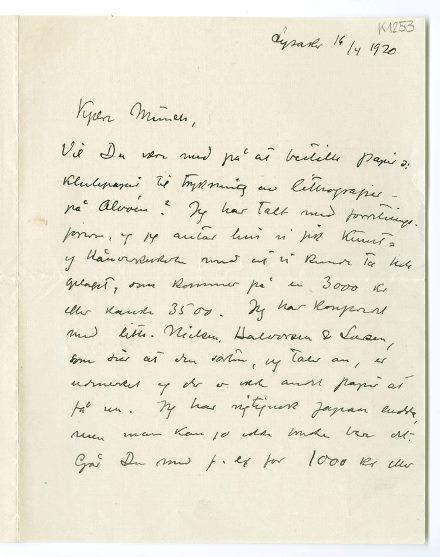 K1253
Lysaker 16/4 1920
Kjære Munch,
Vil Du være med på at bestille papir o:
Klutepapir til trykning av lithografier –
på Alvøen? Jeg har talt med forretnings-
føreren, og jeg antar hvis vi fik Kunst=
og Håndverkskolen med at vi kunde ta hele
oplaget, som kommer på en 3000 kr
eller kanske 3500. Jeg har konferert
med lith. Nielsen, Halvorsen & Larsen,
som sier at den sorten, jeg taler om, er
utmerket og der er ikke andet papir at
få nu. Jeg har rigtignok Japan endda,
men man kan jo ikke bruke bare det.
Går Du med f. ex for 1000 kr eller